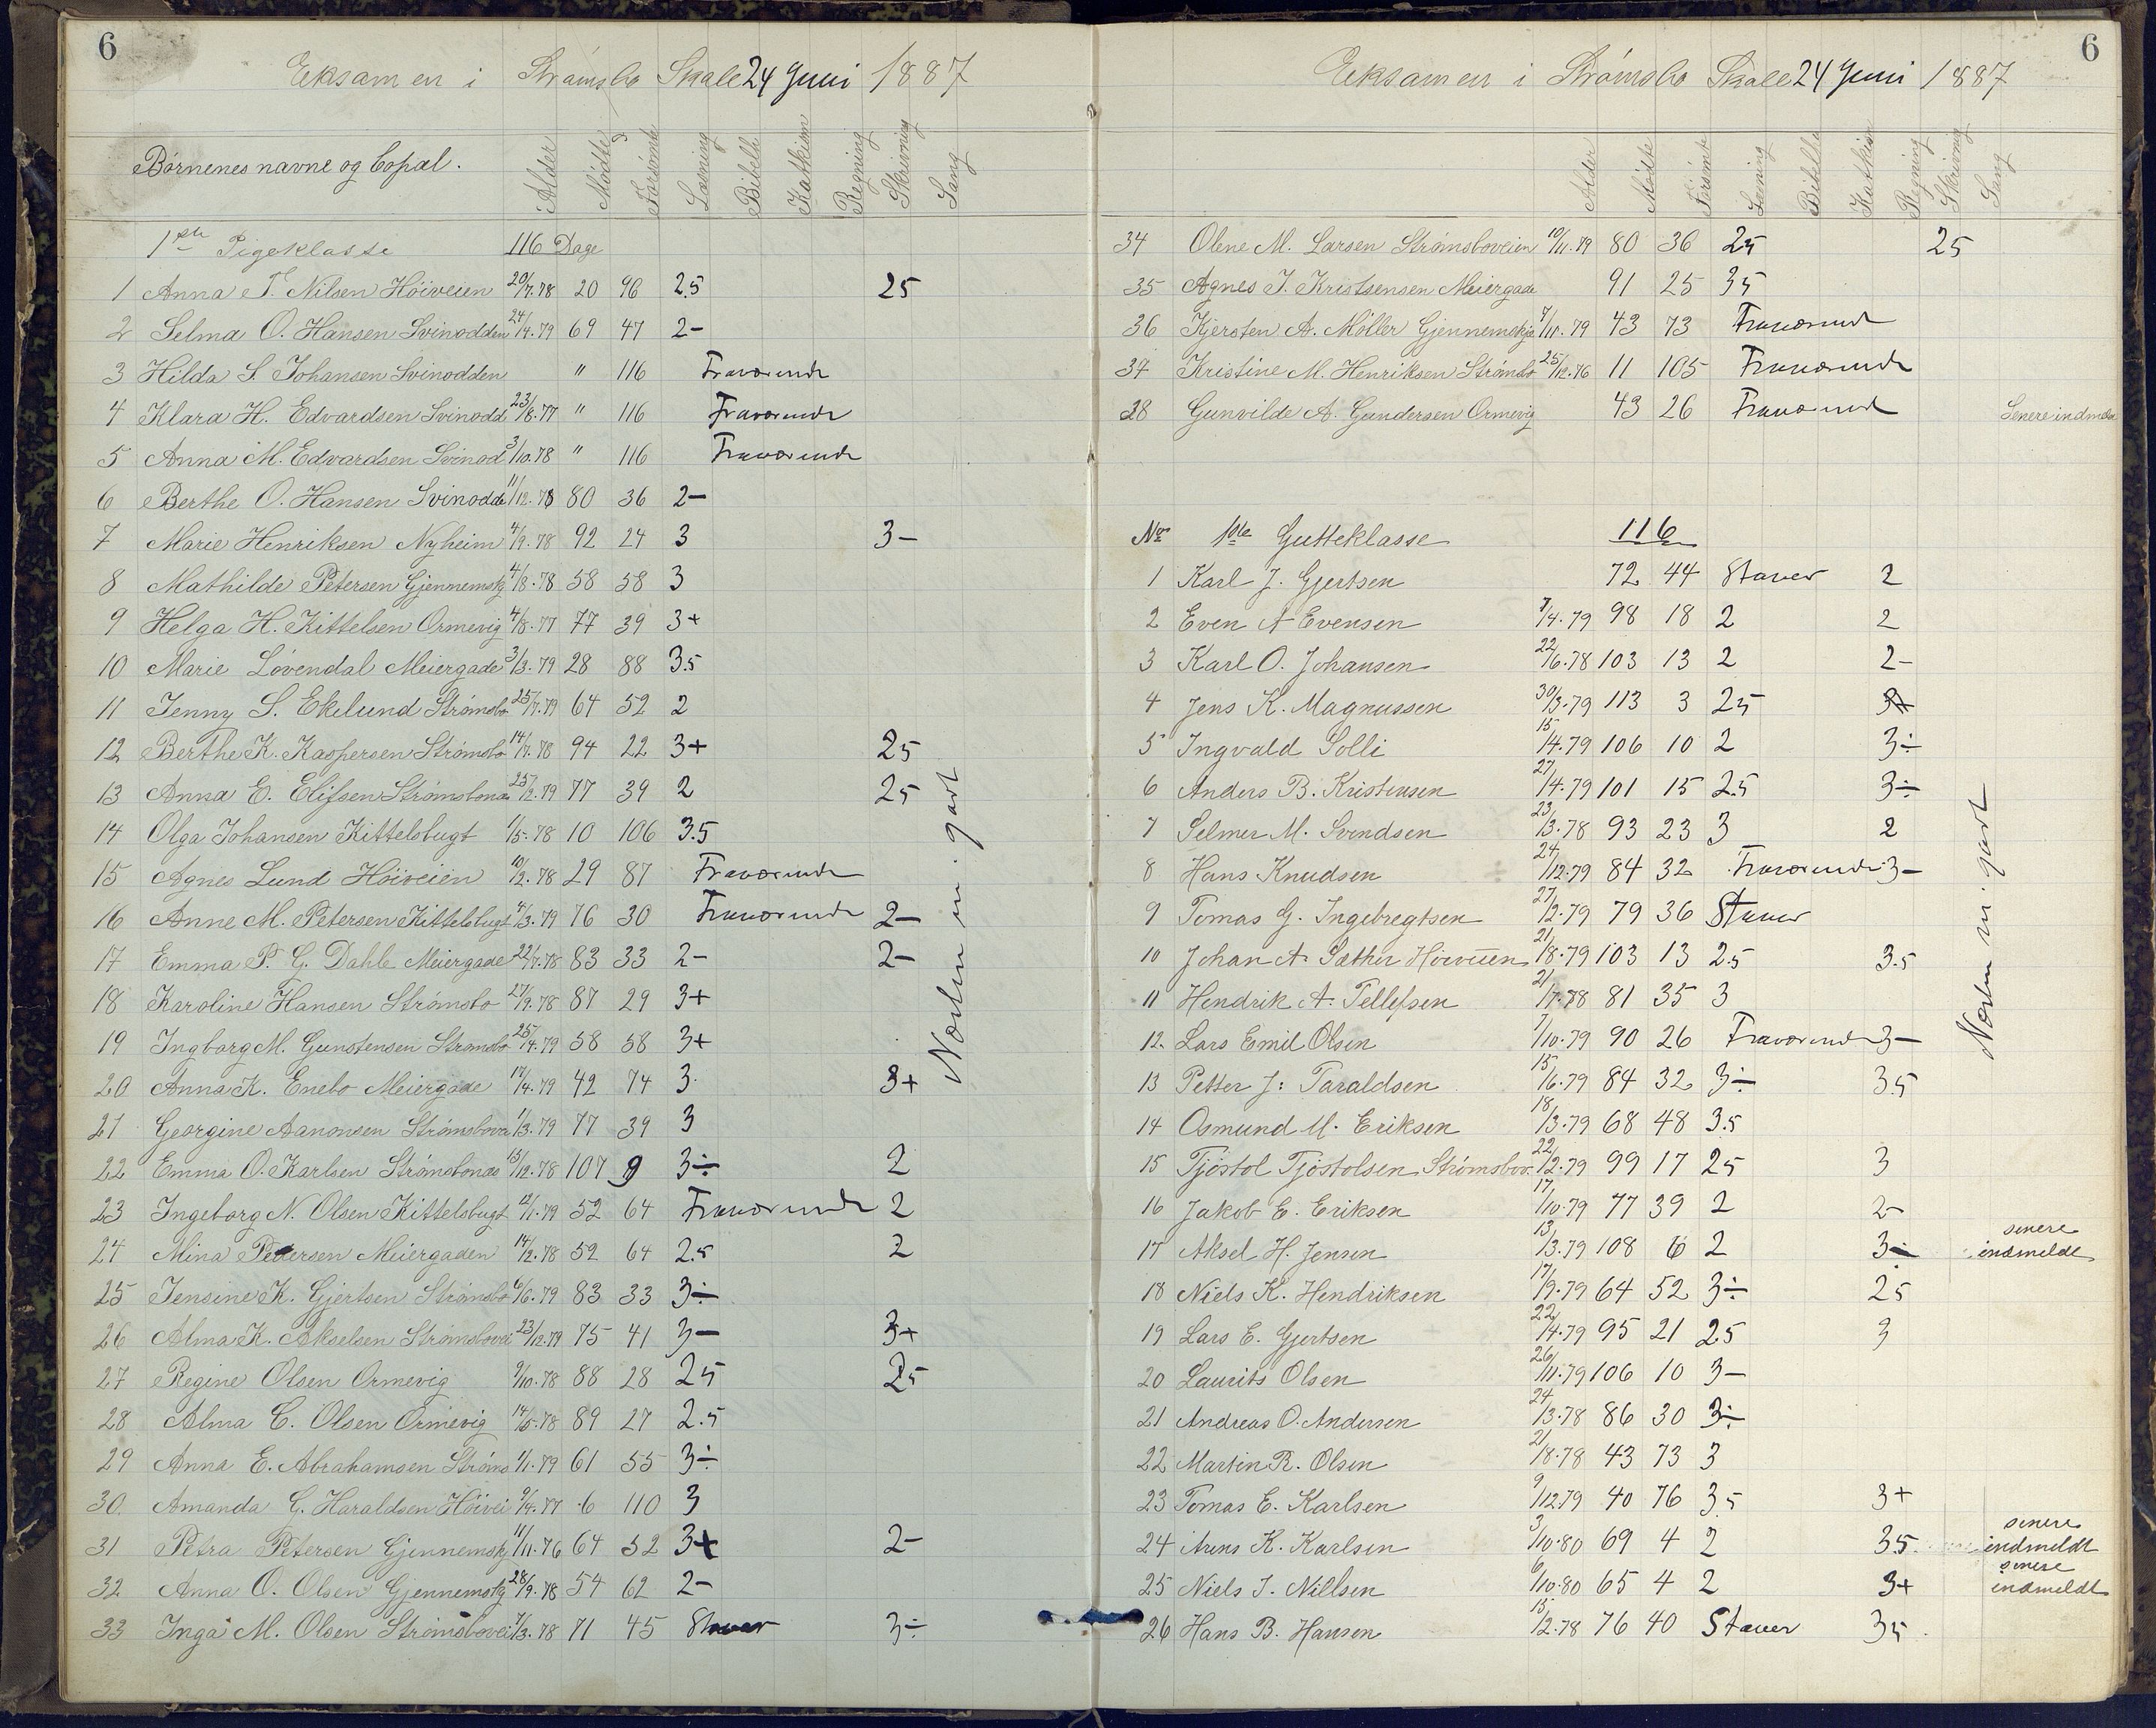 6
Eksamen i Strømsbo Skole 24 Juni 1887
Børnenes navne og bopæl. Alder Mødte Forsømte Læsning Bibelh Katkism Regning Skrivning Sang
1ste Pigeklasse 116 Dage
1 Anna T. Nilsen Höiveien 20/7.78 20 96 2.5 25
2 Selma O. Hansen Svinodden 24/4.79 69 47 2-
3 Hilda S. Johansen Svinodden " 116 Fraværende
4 Klara H. Edvardsen Svinodd 23/6.77 " 116 Fraværende
5 Anna M. Edvardsen Svinod 3/10.78 " 116 Fraværende
6 Berthe O. Hansen Svinodde 11/12.78 80 36 2-
7 Marie Henriksen Nyheim 4/9.78 92 24 3 3-
8 Mathilde Petersen Gjennemskj 4/8.78 58 58 3
9 Helga H. Kittelsen Ormevig 4/8.77 77 39 3+
10 Marie Lövendal Meiergade 3/3.79 28 88 3.5
11 Jenny S. Ekelund Strømsbo 25/7.79 64 52 2
12 Berthe K. Kaspersen Strømsbo 14/7.78 94 22 3+ 25
13 Anna E. Elifsen Strømsbonæs 25/2.79 77 39 2 25
14 Olga Johansen Kittelsbugt 1/5.78 10 106 3.5
15 Agnes Lund Höiveien 10/2.78 29 87 Fraværende
16 Anne M. Petersen Kittelsbugt 4/3.79 76 30 Fraværende 2-
17 Emma P. G. Dahle Meiergade 22/7.78 83 33 2- 2-
18 Karoline Hansen Strømsbo 27/9.78 87 29 3+
19 Ingborg M. Gunstensen Strømsbo 25/4.79 58 58 3+
20 Anna K. Enebo Meiergade 17/4.79 42 74 3 3+
21 Georgine Aanonsen Strømsbove 1/3.79 77 39 3
22 Emma O. Karlsen Strømsbonæs 13/12.78 107 9 3÷ 2
23 Ingeborg N. Olsen Kittelsbugt 12/1.79 52 64 Fraværende 2
24 Mina Petersen Meiergaden 14/2.78 52 64 2.5 2
25 Jensine K. Gjertsen Strømsbo 6/6.79 83 33 3÷
26 Alma K. Akselsen Strømsbovei 23/12.79 75 41 3- 3+
27 Regine Olsen Ormevig 9/10.78 88 28 25 25
28 Alma C. Olsen Ormevig 14/5.78 89 27 2.5
29 Anna E. Abrahamsen Strøms 1/1.79 61 55 3÷
30 Amanda G. Haraldsen Höivei 9/4.77 6 110 3
31 Petra Petersen Gjennemskj 11/11.76 64 52 3+ 2-
32 Anna O. Olsen Gjennemskj 28/9.78 54 62 2-
33 Inga M. Olsen Strømsbovei 4/3.78 71 45 Staver 3÷
Næsten ni. godt
6
Eksamen i Strømsbo Skole 24 Juni 1887
Alder Mødte Forsømte Læsning Bibelh Katkism Regning Skrivning Sang
34 Olene M. Larsen Strømsboveien 10/11.79 80 36 25 25
35 Agnes J. Kristensen Meiergade 91 25 35
36 Kjersten A. Möller Gjennemskj 4/11.79 43 73 Fraværende
37 Kristine M. Henriksen Strømsbo 25/12.76 11 105 Fraværende
38 Gunvilde A. Gundersen Ormevig 43 26 Fraværende Senere indmeldt
No 1ste Gutteklasse 116
1 Karl J. Gjertsen 72 44 Staver 2
2 Even A Evensen 7/4.79 98 18 2 2
3 Karl O. Johansen 22/6.78 103 13 2 2-
4 Jens K. Magnussen 30/3.79 113 3 25
5 Ingvald Solli 15/4.79 106 10 2 3÷
6 Anders B. Kristensen 27/4.79 101 15 2.5 3÷
7 Selmer M. Svendsen 23/3.78 93 23 3 2
8 Hans Knudsen 24/12.79 84 32 Fraværende 3-
9 Tomas G. Ingebregtsen 27/2.79 79 36 Staver
10 Johan A. Sæther Höiveien 21/8.79 103 13 2.5 3.5
11 Hendrik A. Tellefsen 21/7.78 81 35 3
12 Lars Emil Olsen 7/10.79 90 26 Fraværende 3-
13 Petter J: Taraldsen 15/6.79 84 32 3÷ 3.5
14 Osmund M. Eriksen 18/3.79 68 48 3.5
15 Tjöstol Tjöstolsen Strømsbov. 22/2.79 99 17 25 3
16 Jakob E. Eriksen 17/10.79 77 39 2 2-
17 Aksel H. Jensen 13/3.79 108 6 2 3÷ senere indmeldt
18 Niels K. Hendriksen 17/9.79 64 52 3÷ 25
19 Lars E. Gjertsen 22/4.79 95 21 2.5 3
20 Laurits Olsen 26/11.79 106 10 3-
21 Andreas O. Andersen 24/3.78 86 30 3÷
22 Martin R. Olsen 21/8.78 43 73 3
23 Tomas E. Karlsen 9/12.79 40 76 3.5 3+
24 Arens K. Karlsen 3/10.80 69 4 2 3.5 senere indmeldt
25 Niels J. Nillsen 6/10.80 65 4 2 3+ senere indmeldt
26 Hans B. Hansen 15/2.78 76 40 Staver 35
Næsten ni godt